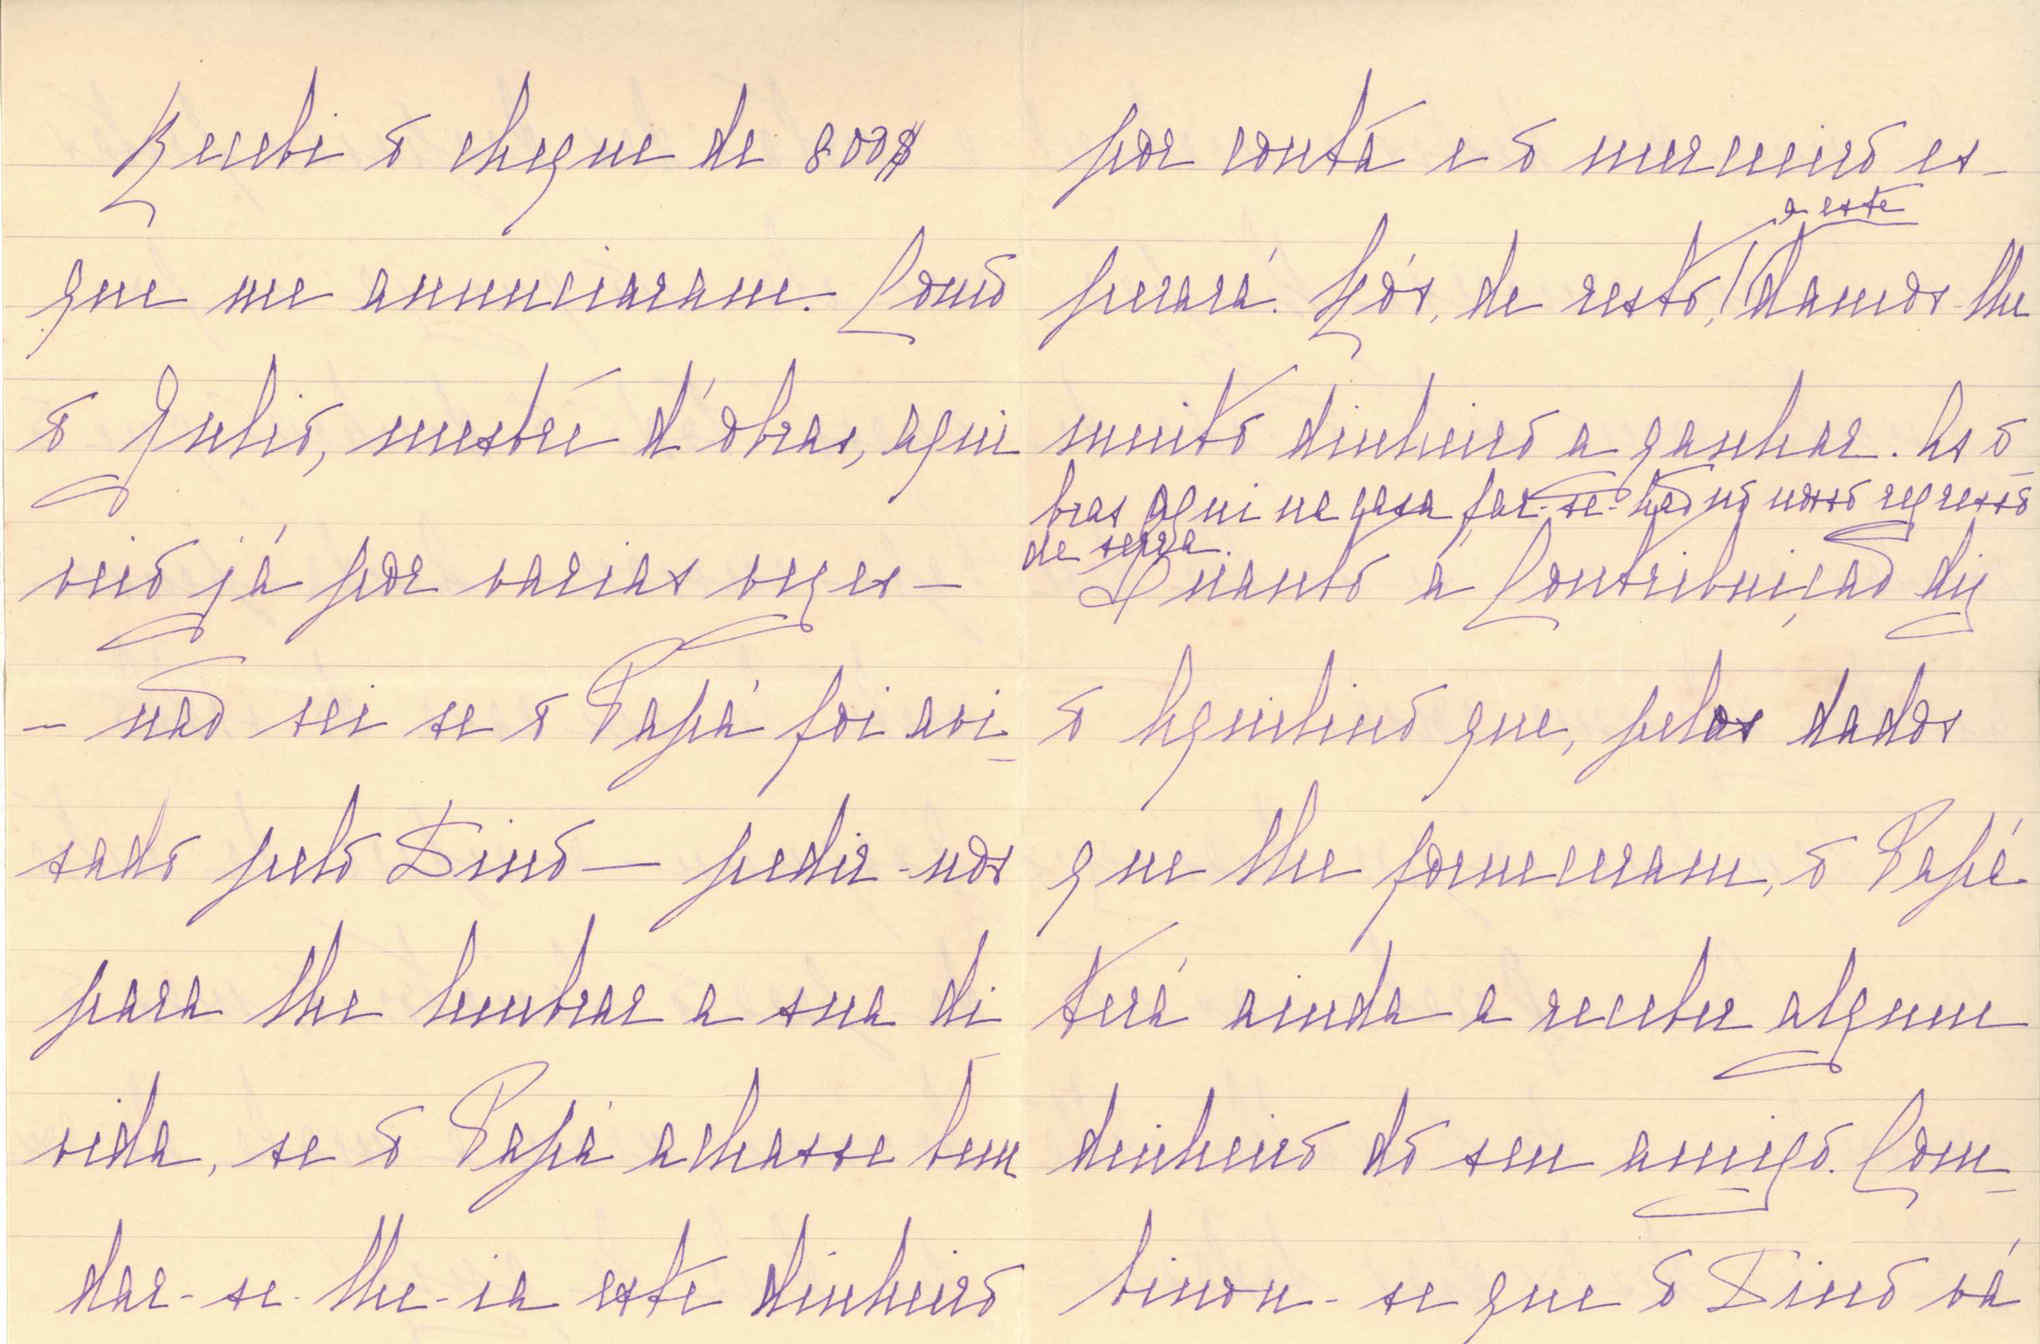 Recebi o cheque de 800$
que me annunciaram. Como
o Julio, mestre d'obras, aqui
veio já por varias vezes –
– não sei se o Papá foi avi-
sado pelo Dino – pedir-nos
para lhe lembrar a sua di-
vida, se o Papá achasse bem
dar-se-lhe-ia este dinheiro
por conta e o marceneiro es-
perará. Nós, de resto, a este damos-lhe
muito dinheiro a ganhar. As o-
bras aqui na casa far-se-hão no nosso regresso
de serra.
Quanto á Contribuição diz
o Aquilino que, pelos dados
que lhe forneceram, o Papá
terá ainda a receber algum
dinheiro do seu amigo. Com-
binou-se que o Dino vá